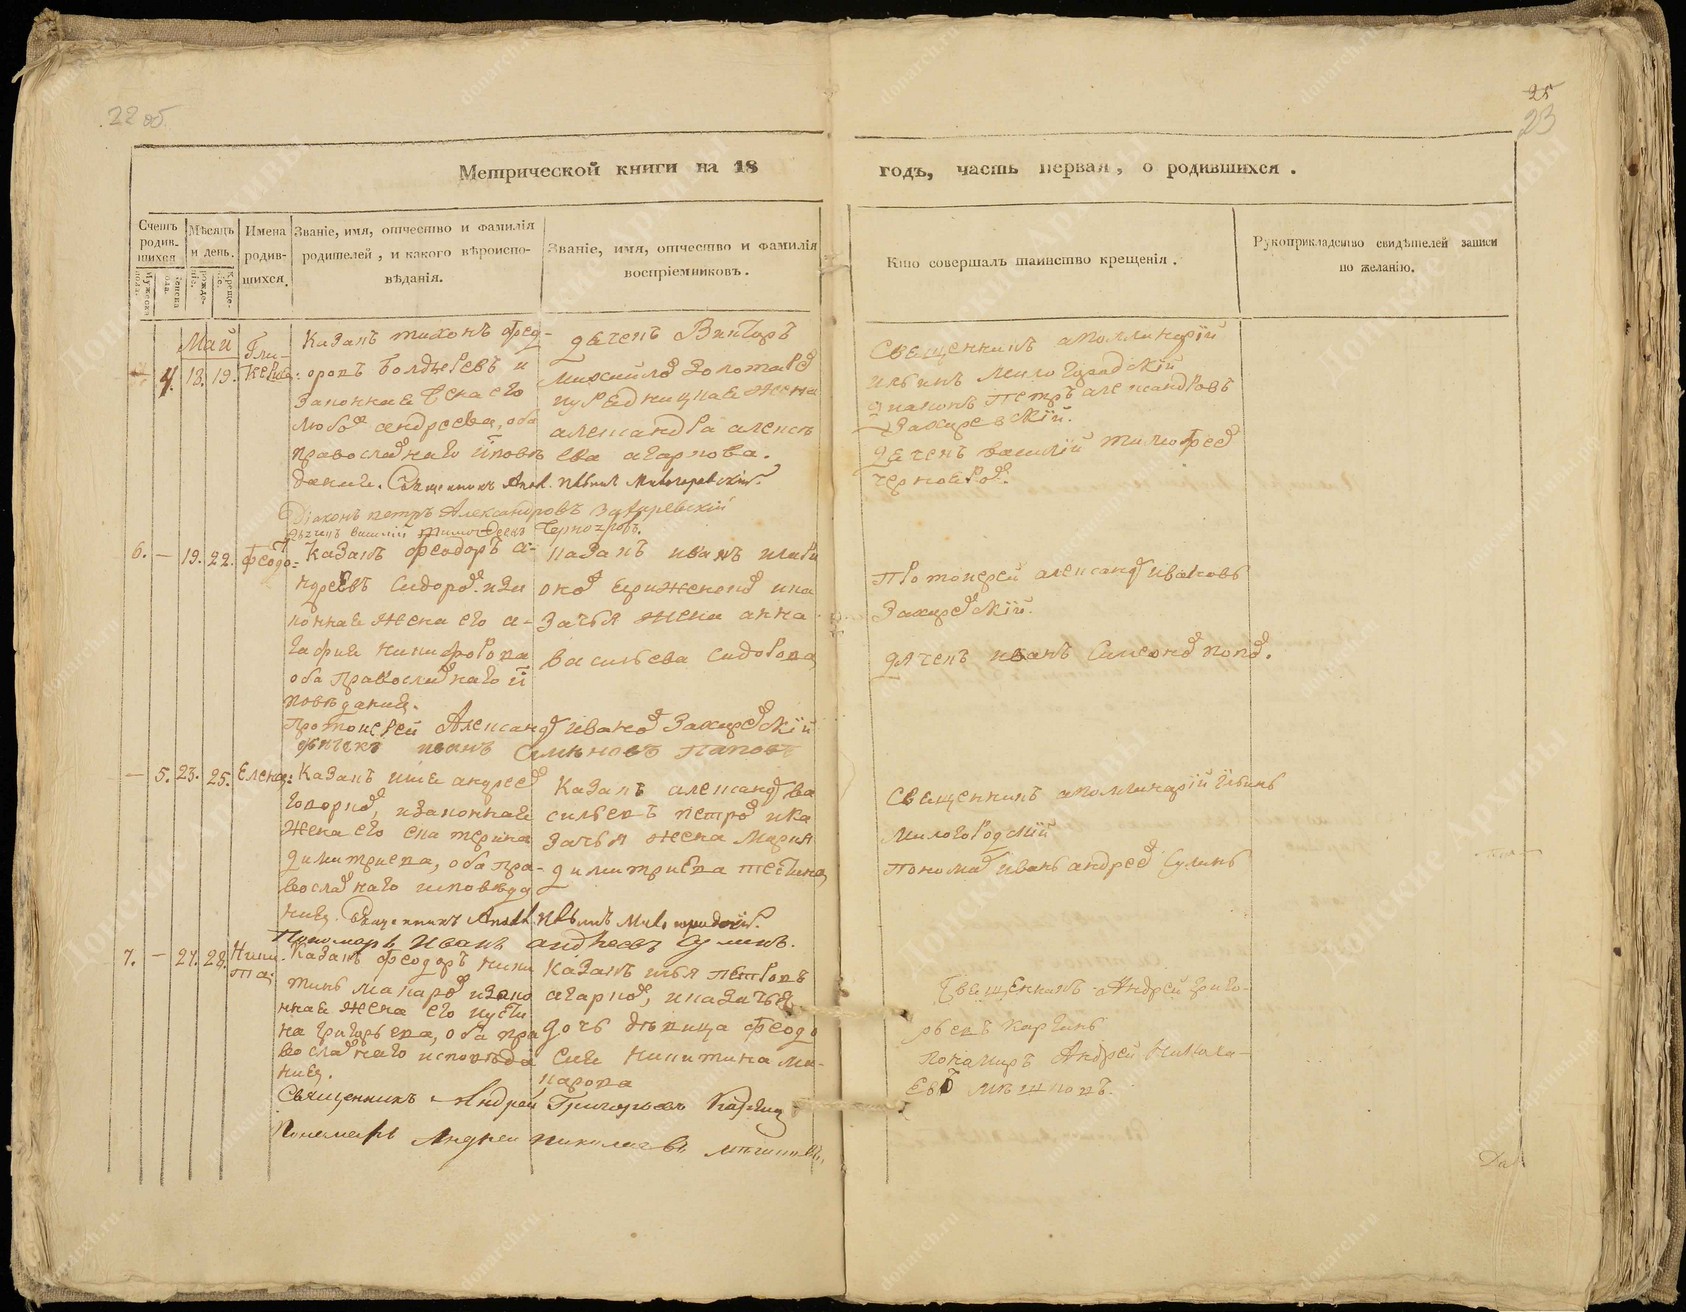 22 об.
25
23
Метрической книги на 18
годъ, часть первая, о родившихся.
Счетъ родив-шихся
Мѣсяцъ и день.
Имена родив-шихся.
Званіе, имя, отчество и фамилія родителей, и какого вѣроиспо-вѣданія.
Званіе, имя, отчество и фамилія воспріемниковъ.
Кто совершалъ таинство крещенія.
Рукоприкладство свидѣтелей записи по желанію.
Мужеска пола.
Женска пола.
рожде-нія.
Креще-нія.
Май
4. 18. 19.
Гли-
керия:
Казакъ тихонъ фед-
оровъ Болдыревъ и
законная жена его
андреева, оба
православнаго испов
дания. Священникъ Апол. Ильинъ Милогорадскій.
Діаконъ петръ Александровъ Захаревскій
Дьячекъ василій Тимофеевъ Чернояровъ.
дьячекъ Викторъ
михайловъ Золотарев
урядницкая жена
александра алексѣ
ева агаркова.
Священникъ аполлинарій
ильинъ милогорадскій
диаконъ Петръ александровъ
Захаревскій.
дьячекъ василій тимофеев
6. — 19. 22.
Феодо=
тъ
Казакъ феодоръ а-
ндреевъ Сидоров. и за
конная жена его а-
гафия никифорова
оба православнаго и
поведания.
Протоиерей Александ Иванов Захаревскій
дьячекъ иванъ Симеоновъ Поповъ
казакъ иванъ илари
онов ка
зачья жена анна
васильева сидорова
Протоиерей александ ивановъ
Захаревскій.
дьячекъ иванъ Симеонов попов.
— 5. 23. 25.
Елена:
Казакъ илия андреев
Говорков, и законная
жена его екатерина
димитриева, оба пра-
вославнаго исповеда
ния. Священникъ Апол. Ильинъ Милогорадскій.
Пономарь Иванъ андреевъ Сулинъ.
Казакъ александ ва
сильевъ петров и ка
зачья жена Мария
димитриева
Священникъ аполлинарій Ильинъ
милогородскій
Пономар иванъ андреев Сулинъ
7. — 27. 28.
Ники-
та:
Казакъ феодоръ ники
тинъ макаров и зако
нная жена его иусти
на григорьева, оба пра
вославнаго исповѣда
ния.
Священникъ Андрей Григорьевъ Каргинъ
Пономарь Андрей Николаевъ
Казакъ илья петровъ
агарков, и казачья
дочь дѣвица феодо
сия никитина ма-
карова
Священникъ Андрей григо-
рьевъ каргинъ
пономарь Андрей Никола-
евъ